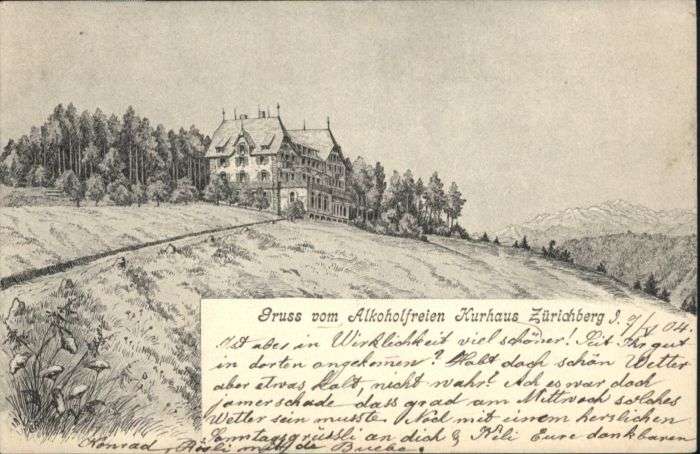 Gruss vom Alkoholfreien Kurhaus Zürichberg J. 9/V 04
Ist aber in Wirklichkeit viel schöner! Seit Ihr gut
in dorten angekommen? Habt doch schön Wetter
aber etwas kalt, nicht wahr! Ach es war doch
jamerschade, dass grad am Mittwoch solches
Wetter sein musste. Nod mit einem herzlichen
Sonntagsgrüssli an dich & Eure dankbaren
Konrad, Rösli mit de Buebe.